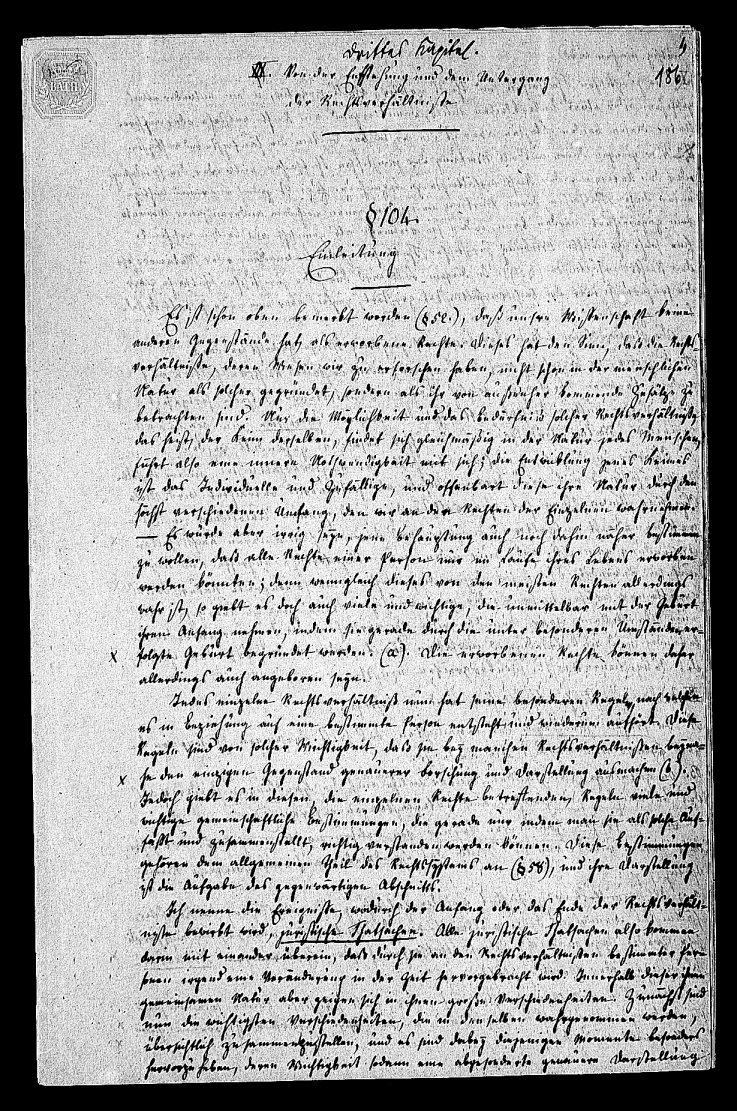 BATH
9
186.
Drittes Kapitel.
III. Von der Entstehung und dem Untergang
der Rechtsverhältnisse
§ 104.
Einleitung
Es ist schon oben bemerkt worden (§ 52.), daß unsre Wissenschaft keine
anderen Gegenstände hat, als erworbene Rechte. Dieses hat den Sinn, daß die Rechts-
verhältnisse, deren Wesen wir zu erforschen haben, nicht schon in der menschlichen
Natur als solcher gegründet, sondern als ihr von außenher kommende Zusätze zu
betrachten sind. Nur die Möglichkeit und das Bedürfniß solcher Rechtsverhältnisse,
das heist, der Keim derselben, findet sich gleichmäsig in der Natur jedes Menschen,
führt also eine innere Nothwendigkeit mit sich; die Entwicklung jenes Keimes
ist das Individuelle und Zufällige, und offenbart diese ihre Natur durch den
höchst verschiedenen Umfang, den wir an den Rechten der Einzelnen wahrnehmen.
— Es würde aber irrig seyn, jene Behauptung auch noch dahin näher bestimmen
zu wollen, daß alle Rechte einer Person nur im Laufe ihres Lebens erworben
werden könnten; denn wenngleich dieses von den meisten Rechten allerdings
wahr ist, so giebt es doch auch viele und wichtige, die unmittelbar mit der Geburt
ihren Anfang nehmen, indem sie gerade durch die unter besonderen Umständen er-
folgte Geburt begründet werden. (a). Die erworbenen Rechte können daher
allerdings auch angeboren seyn.
Jedes einzelne Rechtsverhältniß nun hat seine besonderen Regeln, nach welchen
es in Beziehung auf eine bestimmte Person entsteht und wiederum aufhört. Diese
Regeln sind von solcher Wichtigkeit, daß sie bey manchen Rechtsverhältnissen beyna-
he den einzigen Gegenstand genauerer Forschung und Darstellung ausmachen (b).
Jedoch giebt es in diesen, die einzelnen Rechte betreffenden, Regeln viele und
wichtige gemeinschaftliche Bestimmungen, die gerade nur indem man sie als solche auf-
faßt und zusammenstellt, richtig verstanden werden können. Diese Bestimmungen
gehören dem allgemeinen Theil des Rechtssystems an (§ 58), und ihre Darstellung
ist die Aufgabe des gegenwärtigen Abschnitts.
Ich nenne die Ereignisse, wodurch der Anfang oder das Ende der Rechtsverhält-
nisse bewirkt wird, juristische Thatsachen. Alle juristische Thatsachen also kommen
darin mit einander überein, daß durch sie an den Rechtsverhältnissen bestimmter Per-
sonen irgend eine Veränderung in der Zeit hervorgebracht wird. Innerhalb dieser ihnen
gemeinsamen Natur aber zeigen sich in ihnen große Verschiedenheiten. Zunächst sind
nun die wichtigsten Verschiedenheiten, die in denselben wahrgenommen werden,
übersichtlich zusammenzustellen, und es sind dabey diejenigen Momente besonders
hervorzuheben, deren Wichtigkeit sodann eine abgesonderte genauere Darstellung